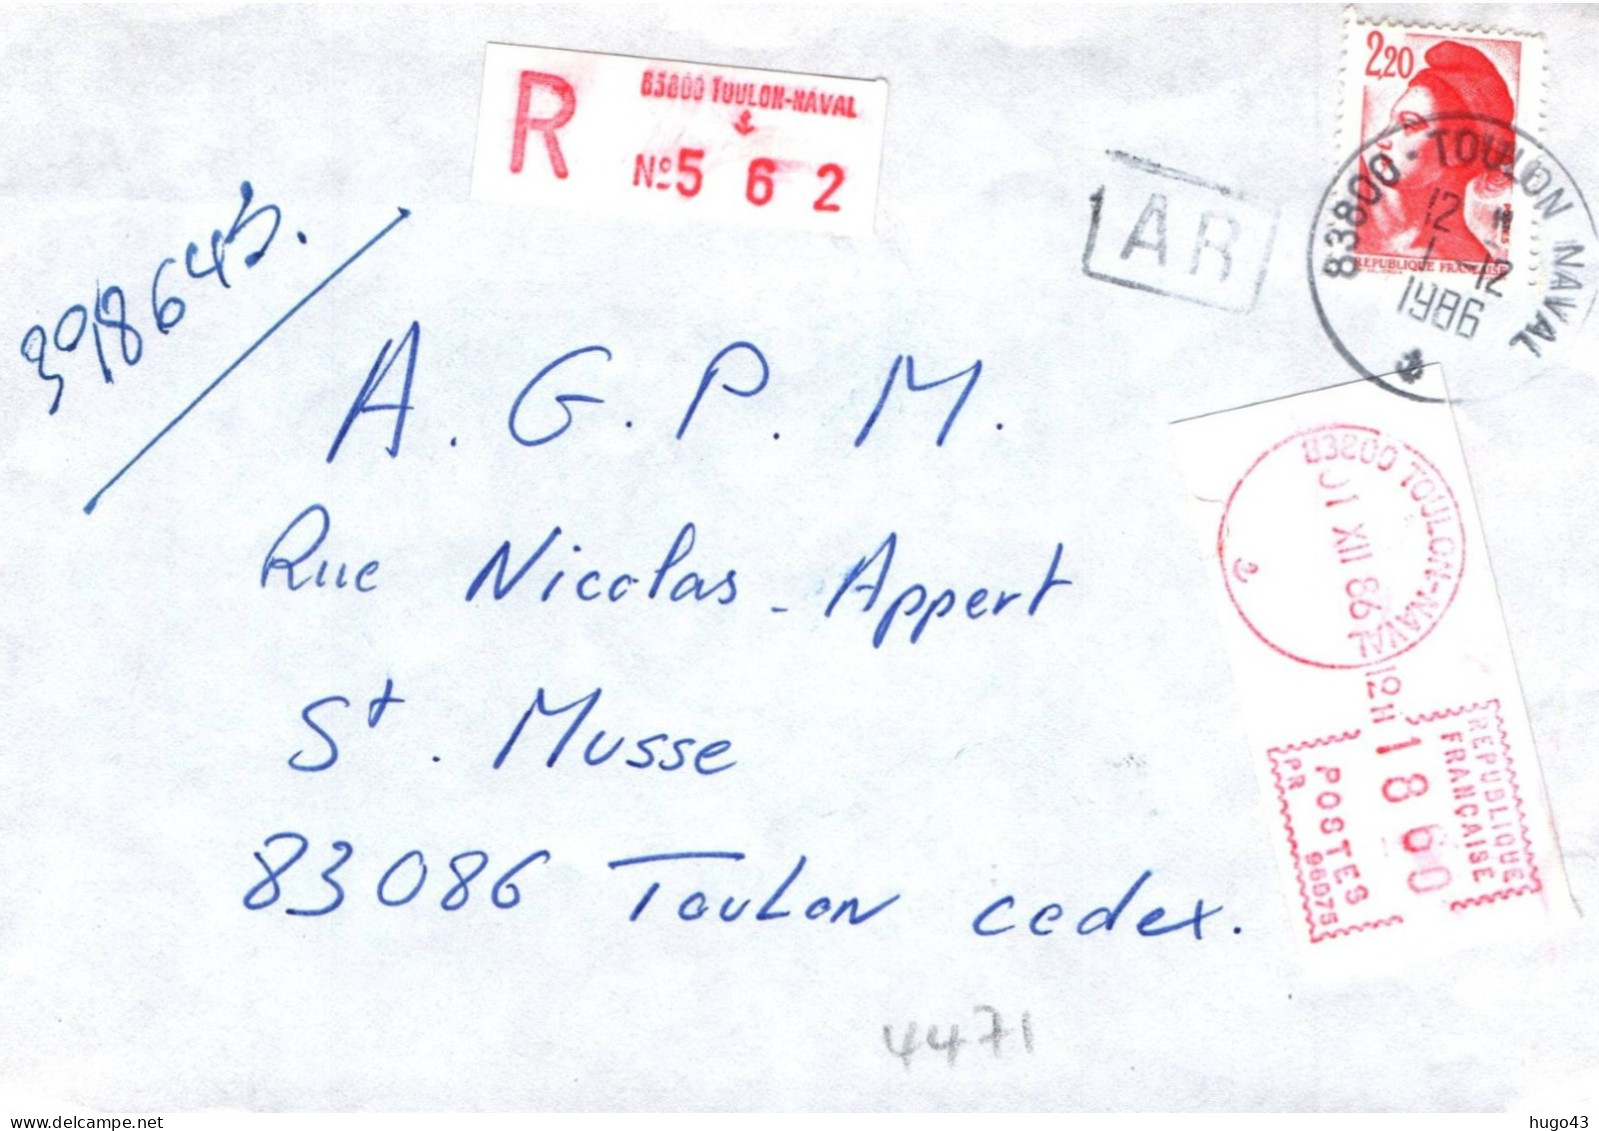 2,20
RÉPUBLIQUE FRANÇAISE
83800 - TOULON NAVAL
12 H
1 - 12
1986
R
83800 TOULON-NAVAL
Nº 5 6 2
AR
A. G. P. M.
Rue Nicolas - Appert
St. Musse
83086 Toulon cedex.
83800 TOULON-NAVAL
01 XII 86 12H
REPUBLIQUE
FRANÇAISE
18 60
POSTES
PR 96075
4471
hugo43